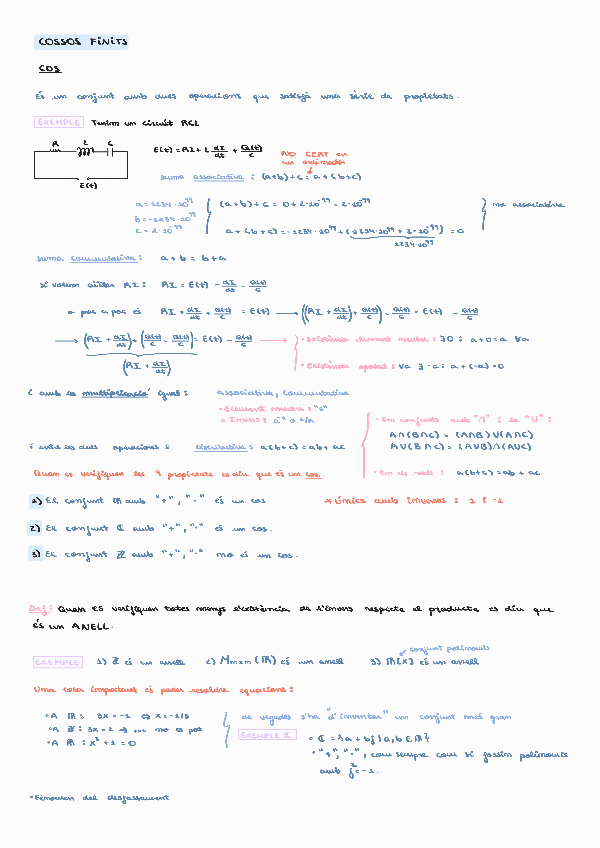 COSSOS FINITS
COS
És un conjunt amb dues operacions que satisfà una sèrie de propietats.
EXEMPLE Tenim un circuit RCL
R L C
E(t)
E(t) = RI + L dI/dt + Q(t)/C
NO CERT en un ordinador
suma associativa : (a+b)+c = a+(b+c)
a = 1234·10^99
b = -1234·10^99
c = 2·10^-99
(a+b)+c = 0+2·10^-99 = 2·10^-99
no associativa
a+(b+c) = -1234·10^99 + (1234·10^99 + 2·10^-99) = 0
1234·10^99
suma commutativa: a+b = b+a
Si volem aïllar RI: RI = E(t) - dI/dt - Q(t)/C
pas a pas és RI + dI/dt + Q(t)/C = E(t) → ((RI + dI/dt) + Q(t)/C) - Q(t)/C = E(t) - Q(t)/C
→ (RI + dI/dt) + (Q(t)/C - Q(t)/C) = E(t) - Q(t)/C →
(RI + dI/dt)
• Existència element neutre: ∃0 : a+0=a ∀a
• Existència oposat: ∀a ∃-a: a+(-a)=0
i amb la multiplicació igual: associativa, commutativa
• Element neutre: "1"
• Invers: a^-1 o 1/a
i entre les dues operacions: distributiva: a(b+c)=ab+ac
• En conjunts amb "∩" i la "U":
A∩(B∩C) = (A∩B)U(A∩C)
AU(B∩C) = (AUB)∩(AUC)
• En els reals: a(b+c)=ab+ac
Quan es verifiquen les 9 propietats es diu que és un cos.
1) El conjunt ℝ amb "+", "·" és un cos
* Únics amb inversos: 1 i -1
2) El conjunt ℂ amb "+", "·" és un cos.
3) El conjunt ℤ amb "+", "·" no és un cos.
Def: Quan es verifiquen totes menys l'existència de l'invers respecte el producte es diu que
és un ANELL.
EXEMPLE 1) ℤ és un anell 2) Mmxm(ℝ) és un anell 3) ℝ[X] és un anell
conjunt polinomis
Una cosa important és poder resoldre equacions:
• A ℝ: 3x=-1 ⇔ x=-1/3
• A ℤ: 3x=2 → ... no es pot
• A ℝ: x²+1=0
de vegades s'ha d'"inventar" un conjunt més gran
EXEMPLE ℂ
• ℂ = {a+bj | a,b ∈ ℝ}
• "+", "·", com sempre com si fossin polinomis
amb j²=-1.